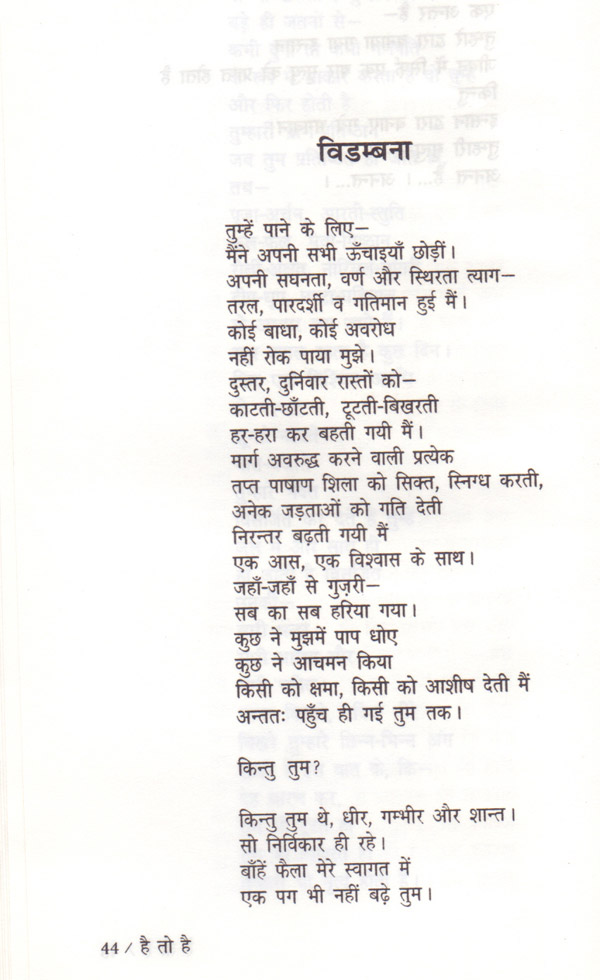 विडम्बना
तुम्हें पाने के लिए–
मैंने अपनी सभी ऊँचाइयाँ छोड़ीं।
अपनी सघनता, वर्ण और स्थिरता त्याग–
तरल, पारदर्शी व गतिमान हुई मैं।
कोई बाधा, कोई अवरोध
नहीं रोक पाया मुझे।
दुस्तर, दुर्निवार रास्तों को–
काटती-छाँटती, टूटती-बिखरती
हर-हरा कर बहती गयी मैं।
मार्ग अवरुद्ध करने वाली प्रत्येक
तप्त पाषाण शिला को सिक्त, स्निग्ध करती,
अनेक जड़ताओं को गति देती
निरन्तर बढ़ती गयी मैं
एक आस, एक विश्वास के साथ।
जहाँ-जहाँ से गुज़री–
सब का सब हरिया गया।
कुछ ने मुझमें पाप धोए
कुछ ने आचमन किया
किसी को क्षमा, किसी को आशीष देती मैं
अन्ततः पहुँच ही गई तुम तक।
किन्तु तुम?
किन्तु तुम थे, धीर, गम्भीर और शान्त।
सो निर्विकार ही रहे।
बाँहें फैला मेरे स्वागत में
एक पग भी नहीं बढ़े तुम।
44 / है तो है